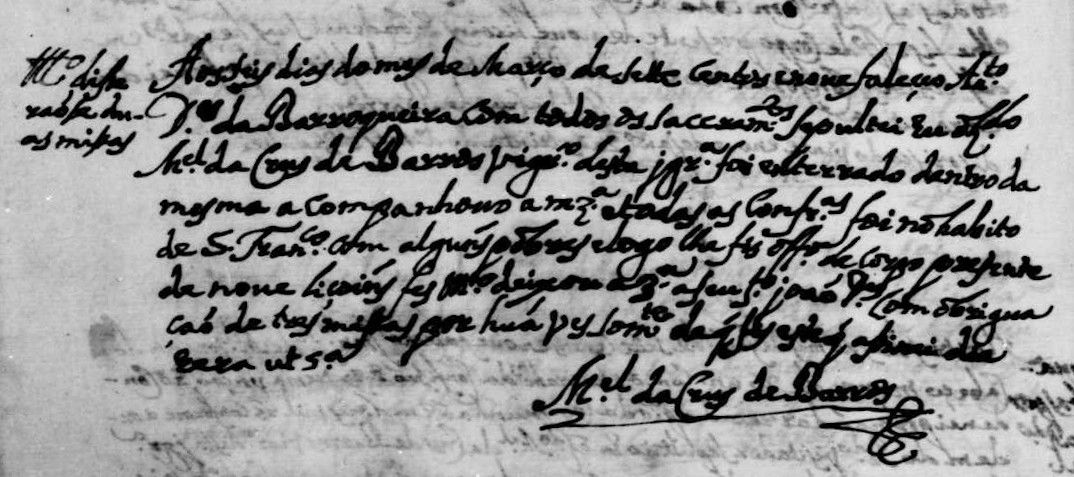 M.to disse
rãose du-
as missas
Aos seis dias do mes de Março de sette Centos e nove faleçeo An.to
da Barroqueira com todos os Saccram.tos sepultei Eu o P.e
M.el da Crus de Barros vigr.o desta jgr.a foi enterrado dentro da
mesma acompanhouo a mz.a e todas as Confr.as foi no habito
de S. Fran.co com alguñs pobres e logo lhe fis off.o de Corpo presente
de nove liçoiñs fes deixou a 3.a a seu f.o joaõ Com obrigua
caõ de tres missas por huã pessoa da q fis este q asinei dia
Eera ut s.a
M.el da Crus de Barros